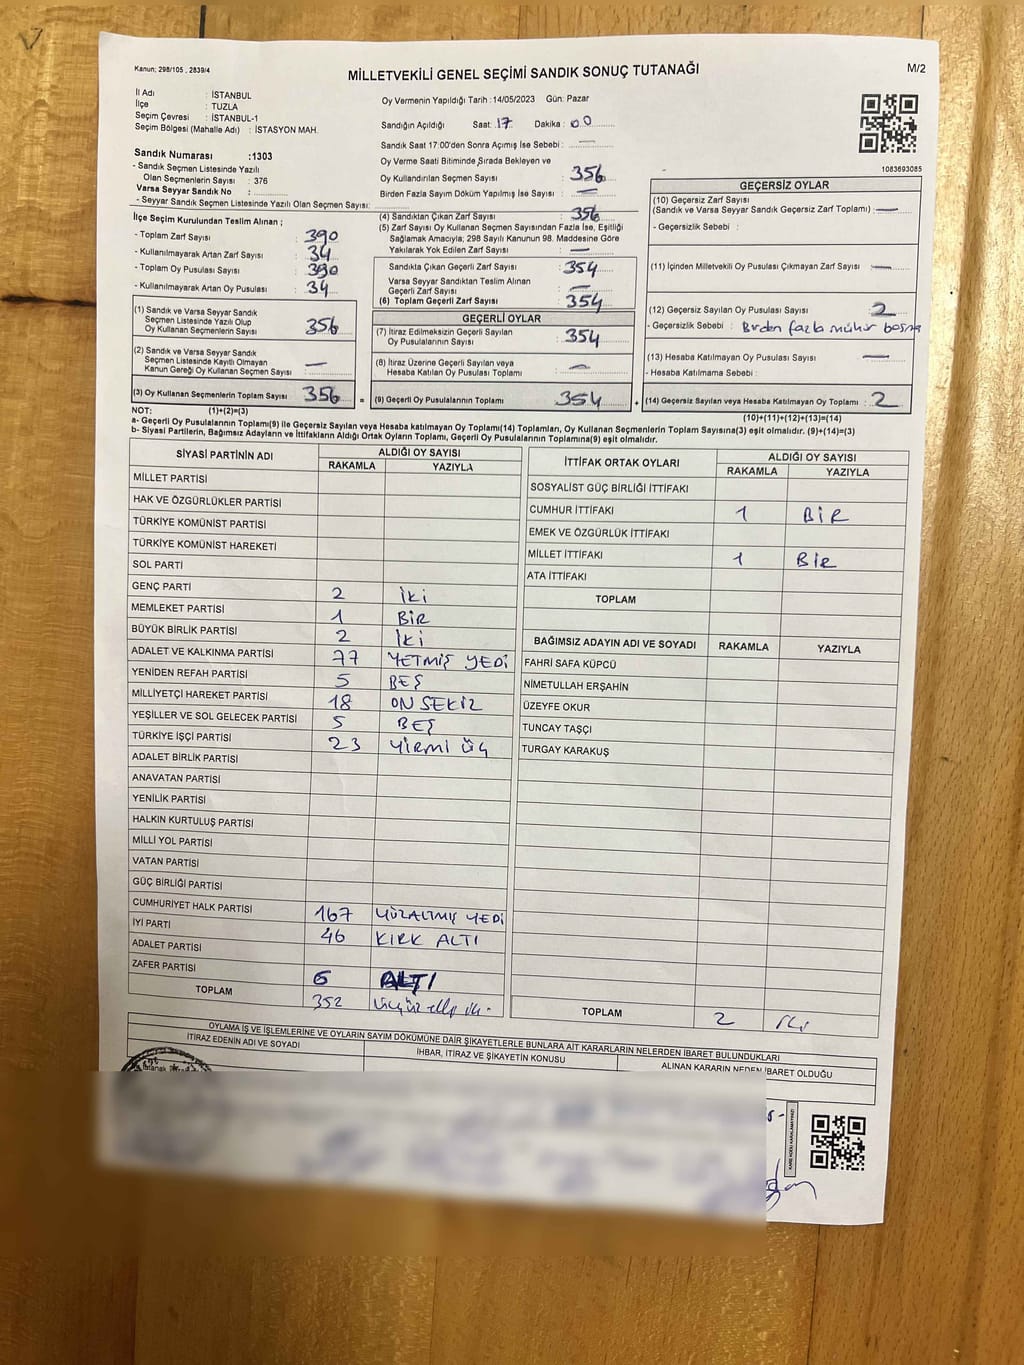 Kanun; 298/105 , 2839/4
MİLLETVEKİLİ GENEL SEÇİMİ SANDIK SONUÇ TUTANAĞI
M/2
İl Adı : İSTANBUL
İlçe : TUZLA
Seçim Çevresi : İSTANBUL-1
Seçim Bölgesi (Mahalle Adı) : İSTASYON MAH.
Sandık Numarası :1303
- Sandık Seçmen Listesinde Yazılı
Olan Seçmenlerin Sayısı : 376
Varsa Seyyar Sandık No :
- Seyyar Sandık Seçmen Listesinde Yazılı Olan Seçmen Sayısı:
Oy Vermenin Yapıldığı Tarih : 14/05/2023 Gün: Pazar
Sandığın Açıldığı Saat: 17 Dakika : 00
Sandık Saat 17:00'den Sonra Açımış İse Sebebi : —
Oy Verme Saati Bitiminde Sırada Bekleyen ve
Oy Kullandırılan Seçmen Sayısı : 356
Birden Fazla Sayım Döküm Yapılmış İse Sayısı : —
1083693085
İlçe Seçim Kurulundan Teslim Alınan ;
- Toplam Zarf Sayısı : 390
- Kullanılmayarak Artan Zarf Sayısı : 34
- Toplam Oy Pusulası Sayısı : 390
- Kullanılmayarak Artan Oy Pusulası : 34
(1) Sandık ve Varsa Seyyar Sandık
Seçmen Listesinde Yazılı Olup
Oy Kullanan Seçmenlerin Sayısı : 356
(2) Sandık ve Varsa Seyyar Sandık
Seçmen Listesinde Kayıtlı Olmayan
Kanun Gereği Oy Kullanan Seçmen Sayısı : —
(3) Oy Kullanan Seçmenlerin Toplam Sayısı : 356 =
(4) Sandıktan Çıkan Zarf Sayısı : 356
(5) Zarf Sayısı Oy Kullanan Seçmen Sayısından Fazla İse, Eşitliği
Sağlamak Amacıyla; 298 Sayılı Kanunun 98. Maddesine Göre
Yakılarak Yok Edilen Zarf Sayısı : —
Sandıkta Çıkan Geçerli Zarf Sayısı : 354
Varsa Seyyar Sandıktan Teslim Alınan
Geçerli Zarf Sayısı : —
(6) Toplam Geçerli Zarf Sayısı : 354
GEÇERLİ OYLAR
(7) İtiraz Edilmeksizin Geçerli Sayılan
Oy Pusulalarının Sayısı : 354
(8) İtiraz Üzerine Geçerli Sayılan veya
Hesaba Katılan Oy Pusulası Toplamı : —
(9) Geçerli Oy Pusulalarının Toplamı : 354 +
GEÇERSİZ OYLAR
(10) Geçersiz Zarf Sayısı
(Sandık ve Varsa Seyyar Sandık Geçersiz Zarf Toplamı) : —
- Geçersizlik Sebebi :
(11) İçinden Milletvekili Oy Pusulası Çıkmayan Zarf Sayısı : —
(12) Geçersiz Sayılan Oy Pusulası Sayısı : 2
- Geçersizlik Sebebi : Birden fazla mühür basma
(13) Hesaba Katılmayan Oy Pusulası Sayısı : —
- Hesaba Katılmama Sebebi :
(14) Geçersiz Sayılan veya Hesaba Katılmayan Oy Toplamı : 2
NOT: (1)+(2)=(3) (10)+(11)+(12)+(13)=(14)
a- Geçerli Oy Pusulalarının Toplamı(9) ile Geçersiz Sayılan veya Hesaba katılmayan Oy Toplamı(14) Toplamları, Oy Kullanan Seçmenlerin Toplam Sayısına(3) eşit olmalıdır. (9)+(14)=(3)
b- Siyasi Partilerin, Bağımsız Adayların ve İttifakların Aldığı Ortak Oyların Toplamı, Geçerli Oy Pusulalarının Toplamına(9) eşit olmalıdır.
SİYASİ PARTİNİN ADI ALDIĞI OY SAYISI
RAKAMLA YAZIYLA
MİLLET PARTİSİ
HAK VE ÖZGÜRLÜKLER PARTİSİ
TÜRKİYE KOMÜNİST PARTİSİ
TÜRKİYE KOMÜNİST HAREKETİ
SOL PARTİ
GENÇ PARTİ 2 İKİ
MEMLEKET PARTİSİ 1 BİR
BÜYÜK BİRLİK PARTİSİ 2 İKİ
ADALET VE KALKINMA PARTİSİ 77 YETMİŞ YEDİ
YENİDEN REFAH PARTİSİ 5 BEŞ
MİLLİYETÇİ HAREKET PARTİSİ 18 ON SEKİZ
YEŞİLLER VE SOL GELECEK PARTİSİ 5 BEŞ
TÜRKİYE İŞÇİ PARTİSİ 23 YİRMİ ÜÇ
ADALET BİRLİK PARTİSİ
ANAVATAN PARTİSİ
YENİLİK PARTİSİ
HALKIN KURTULUŞ PARTİSİ
MİLLİ YOL PARTİSİ
VATAN PARTİSİ
GÜÇ BİRLİĞİ PARTİSİ
CUMHURİYET HALK PARTİSİ 167 YÜZALTMIŞ YEDİ
İYİ PARTİ 46 KIRK ALTI
ADALET PARTİSİ
ZAFER PARTİSİ 6 ALTI
TOPLAM 352 üçyüz elli iki
İTTİFAK ORTAK OYLARI ALDIĞI OY SAYISI
RAKAMLA YAZIYLA
SOSYALIST GÜÇ BİRLİĞİ İTTİFAKI
CUMHUR İTTİFAKI 1 BİR
EMEK VE ÖZGÜRLÜK İTTİFAKI
MİLLET İTTİFAKI 1 BİR
ATA İTTİFAKI
TOPLAM
BAĞIMSIZ ADAYIN ADI VE SOYADI RAKAMLA YAZIYLA
FAHRİ SAFA KÜPCÜ
NİMETULLAH ERŞAHİN
ÜZEYFE OKUR
TUNCAY TAŞÇI
TURGAY KARAKUŞ
TOPLAM 2 iki
OYLAMA İŞ VE İŞLEMLERİNE VE OYLARIN SAYIM DÖKÜMÜNE DAİR ŞİKAYETLERLE BUNLARA AİT KARARLARIN NELERDEN İBARET BULUNDUKLARI
İTİRAZ EDENİN ADI VE SOYADI İHBAR, İTİRAZ VE ŞİKAYETİN KONUSU ALINAN KARARIN NEDEN İBARET OLDUĞU